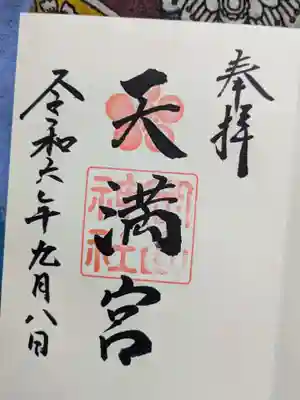 奉拝
天満宮
令和六年九月八日